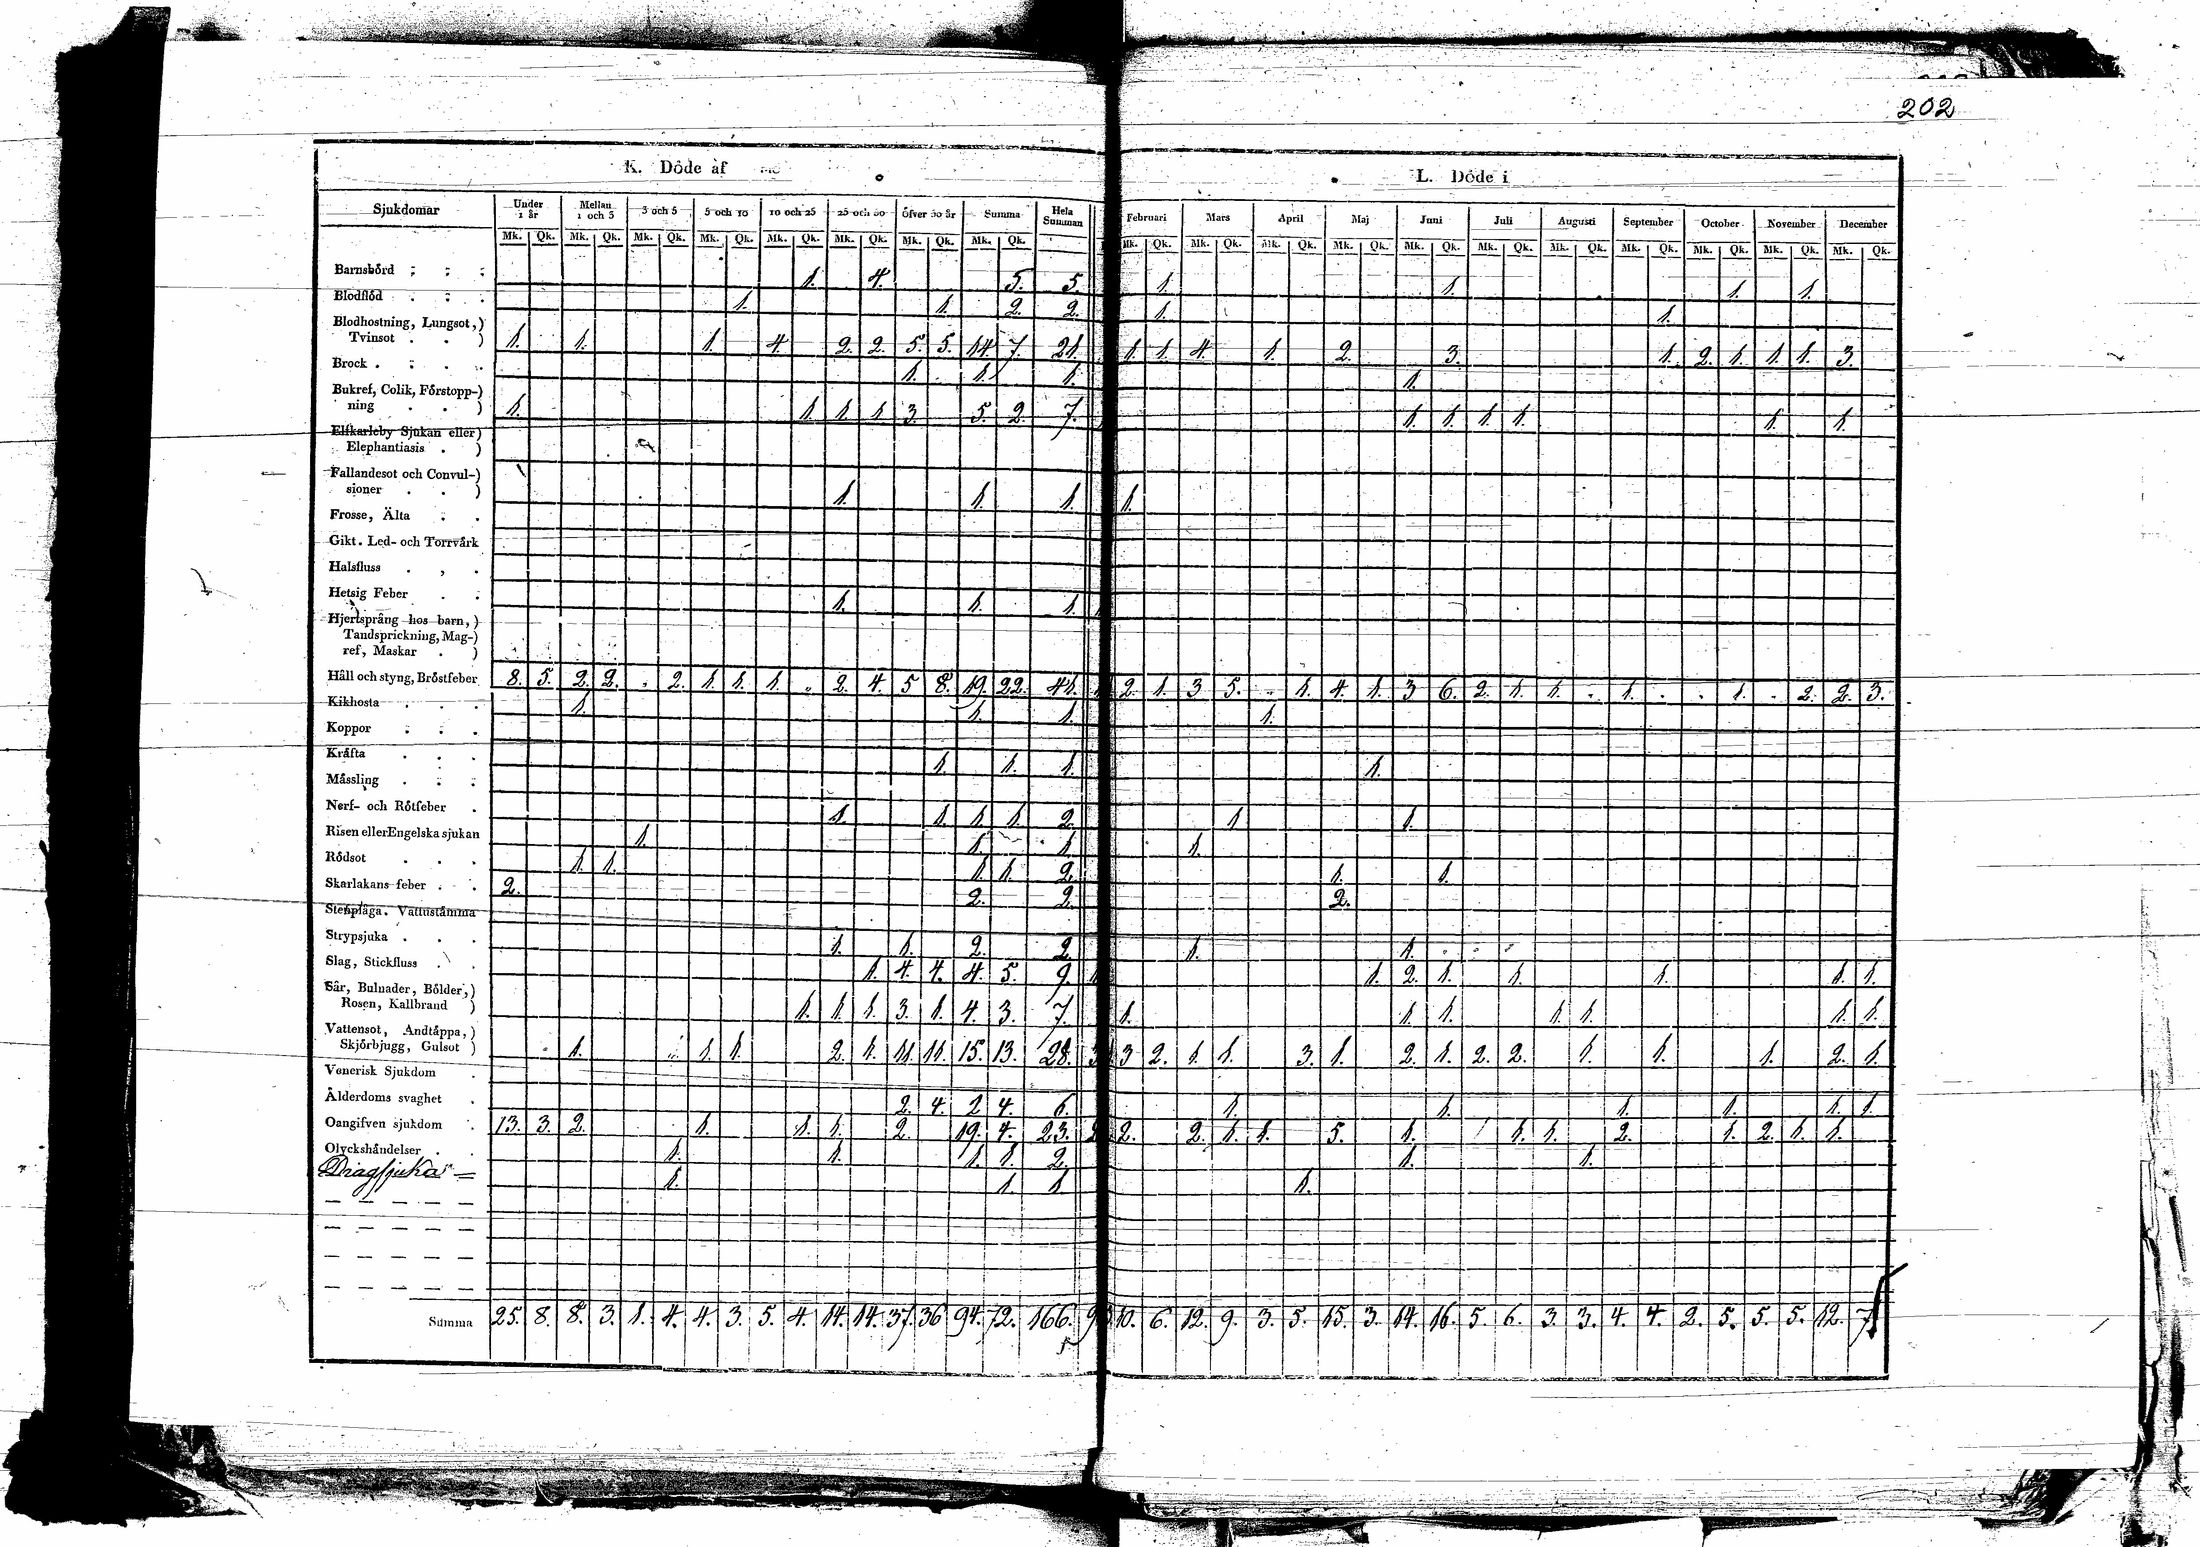 202
K. Döde af
L. Döde i
Sjukdomar Under 1 år Mellan 1 och 3 3 och 5 5 och 10 10 och 25 25 och 50 Öfver 50 år Summa Hela Summan Februari Mars April Maj Juni Juli Augusti September October November December
Mk. Qk. Mk. Qk. Mk. Qk. Mk. Qk. Mk. Qk. Mk. Qk. Mk. Qk. Mk. Qk. Mk. Qk. Mk. Qk. Mk. Qk. Mk. Qk. Mk. Qk. Mk. Qk. Mk. Qk. Mk. Qk. Mk. Qk. Mk. Qk. Mk. Qk.
Barnsbörd 1. 4. 5. 5. 1. 1. 1. 1.
Blodflöd 1. 1. 2. 2. 1. 1.
Blodhostning, Lungsot,)
Tvinsot . . ) 1. 1. 1. 4. 2. 2. 5. 5. 14. 7. 21. 1. 1. 4. 1. 2. 3. 1. 2. 1. 1. 1. 3.
Brock . 1. 1. 1. 1.
Bukref, Colik, Förstopp-)
ning . . ) 1. 1. 1. 1. 3. 5. 2. 7. 1. 1. 1. 1. 1. 1.
Elfkarleby Sjukan eller)
Elephantiasis . )
Fallandesot och Convul-)
sioner . . ) 1. 1. 1. 1.
Frosse, Älta . .
Gikt. Led- och Torrvärk
Halsfluss . , .
Hetsig Feber . . 1. 1. 1.
Hjertsprång hos barn,)
Tandsprickning, Mag-)
ref, Maskar . )
Håll och styng, Bröstfeber 8. 5. 2. 2. „ 2. 1. 1. 1. „ 2. 4. 5 8. 19. 22. 41. 2. 1. 3 5. „ 1. 4. 1. 3 6. 2. 1. 1. . 1. . . 1. . 2. 2. 3.
Kikhosta . . . 1. 1. 1. 1.
Koppor . . .
Kräfta . . . 1. 1. 1. 1.
Mässling . . .
Nerf- och Rötfeber . 1. 1. 1. 1. 2. 1 1.
Risen eller Engelska sjukan 1. 1. 1. 1.
Rödsot . . . 1. 1. 1. 1. 2. 1. 1.
Skarlakans feber . . 2. 2. 2. 2.
Stenpläga. Vattustämma
Strypsjuka . . . 1. 1. 2. 2. 1. 1.
Slag, Stickfluss . . 1. 4. 4. 4. 5. 9. 1. 2. 1. 1. 1. 1. 1.
Sår, Bulnader, Bölder,)
Rosen, Kallbrand ) 1. 1. 1. 3. 1. 4. 3. 7. 1. 1. 1. 1. 1. 1. 1.
Vattensot, Andtäppa,)
Skjörbjugg, Gulsot ) 1. 1. 1. 2. 1. 11. 11. 15. 13. 28. 3 3 2. 1. 1. 3. 1. 2. 1. 2. 2. 1. 1. 1. 2. 1.
Venerisk Sjukdom .
Ålderdoms svaghet . 2. 4. 2 4. 6. 1. 1. 1. 1. 1. 1.
Oangifven sjukdom . 13. 3. 2. 1. 1. 1. 2. 19. 4. 23. 2 2. 2. 1. 1. 5. 1. 1. 1. 2. 1. 2. 1. 1.
Olyckshändelser . . 1. 1. 1. 1. 2. 1. 1.
Dragsjuka 1. 1. 1. 1.
Summa 25. 8. 8. 3. 1. 4. 4. 3. 5. 4. 14. 14. 37. 36 94. 72. 166. 9 10. 6. 12. 9. 3. 5. 15. 3. 14. 16. 5. 6. 3. 3. 4. 4. 2. 5. 5. 5. 12. 7